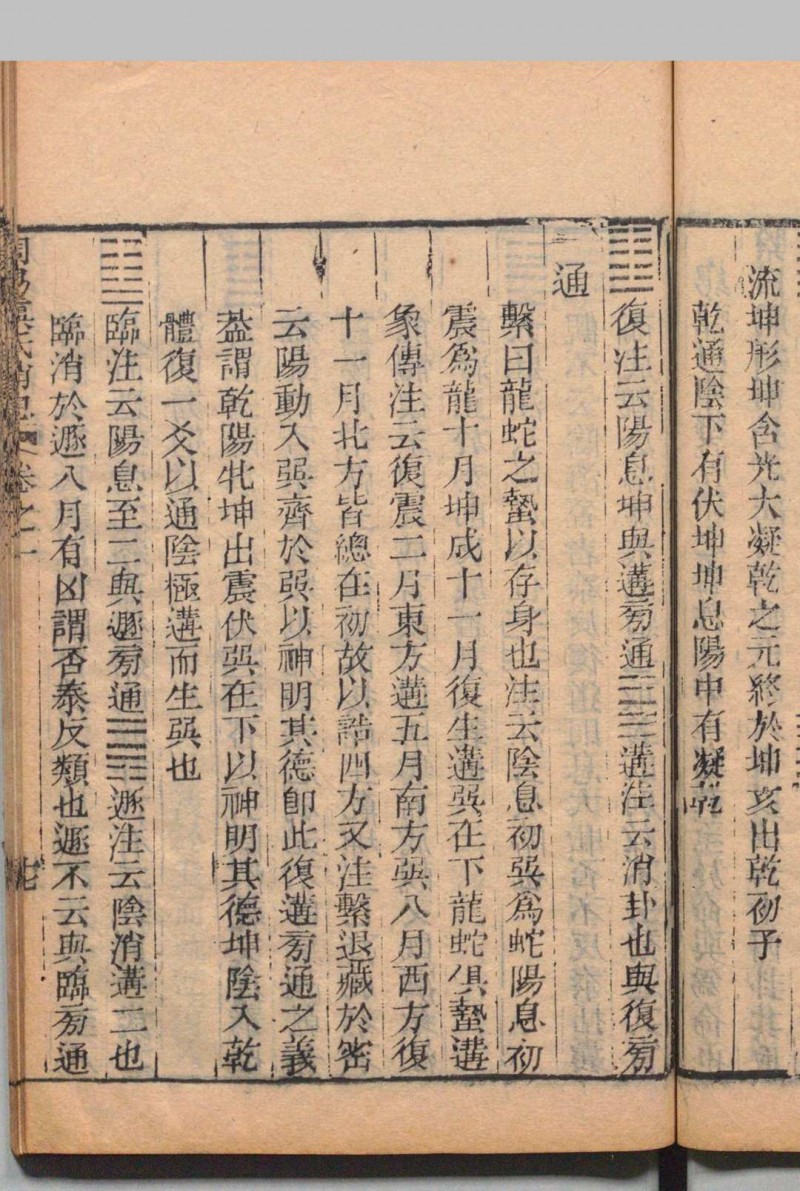 流坤形坤含光大凝乾之元終於坤亥出乾初子
乾通陰下有伏坤坤息陽中有凝乾
䷗復注云陽息坤與遘旁通䷫遘注云消卦也與復旁
通
繫曰龍蛇之蟄以存身也注云陰息初巽爲蛇陽息初
震爲龍十月坤成十一月復生遘巽在下龍蛇俱蟄遘
象傳注云復震二月東方遘五月南方巽八月西方復
十一月北方皆總在初故以誥四方又注繫退藏於密
云陽動入巽齊於巽以神明其德卽此復遘旁通之義
葢謂乾陽牝坤出震伏巽在下以神明其德坤陰入乾
體復一爻以通陰極遘而生巽也
䷒臨注云陽息至二與遯旁通䷠遯注云陰消遘二也
臨消於遯八月有凶謂否泰反類也遯不云與臨旁通
卷之一